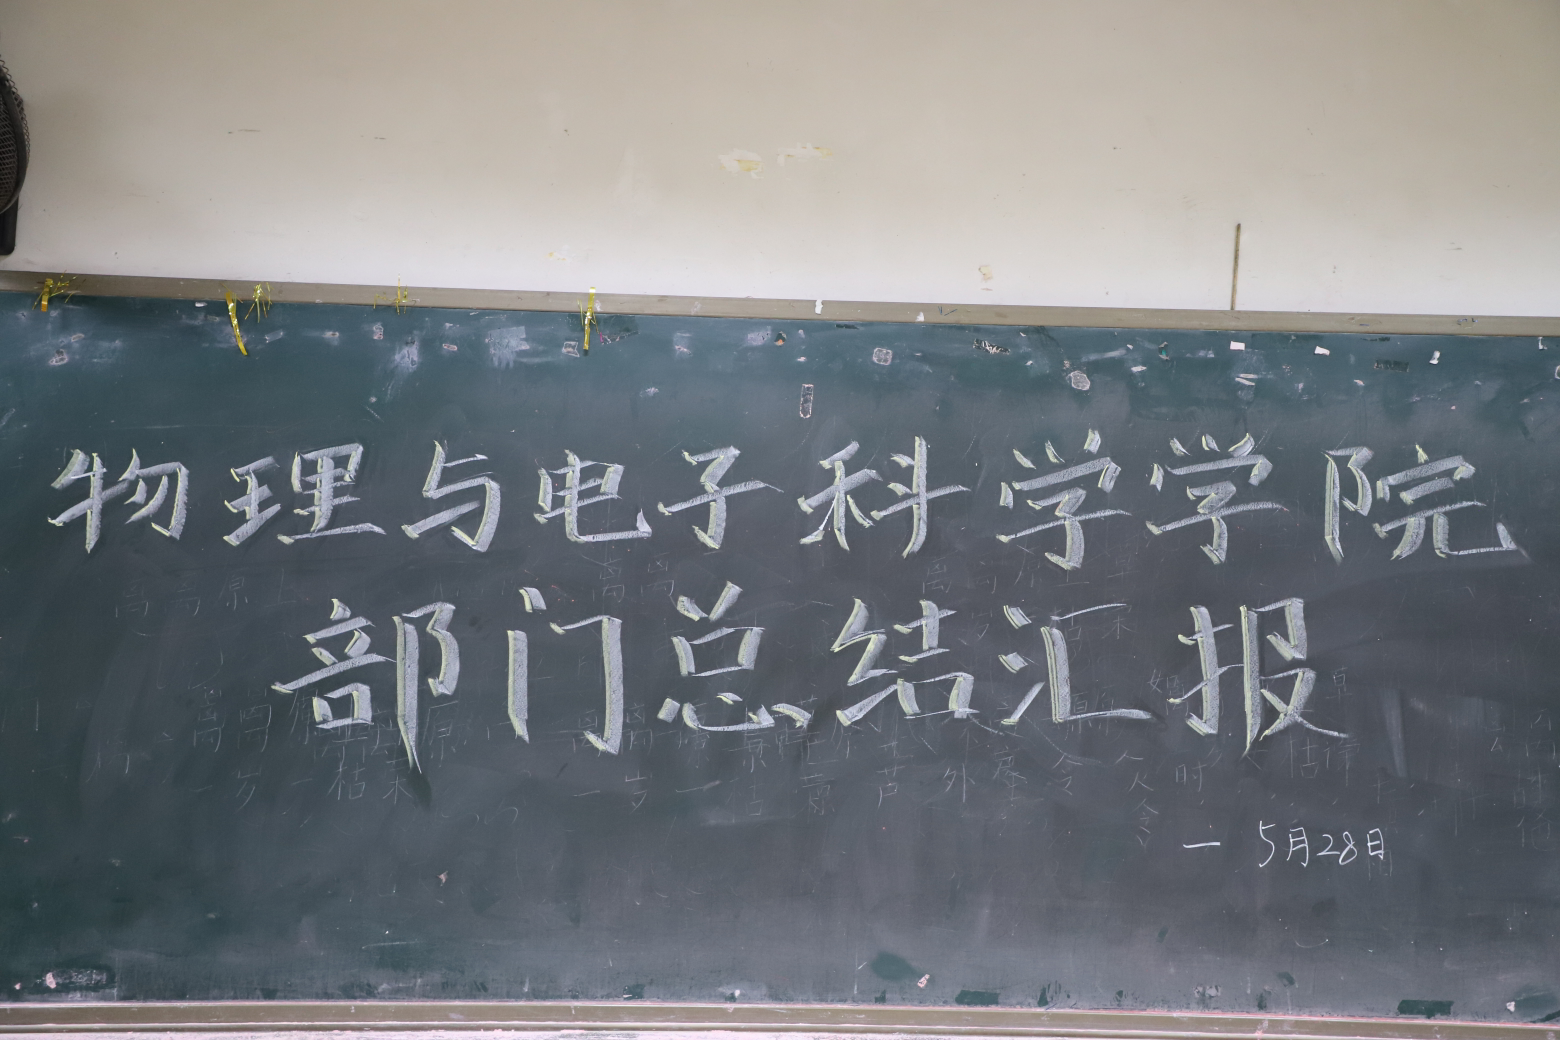 物理与电子科学学院
部门总结汇报
一 5月28日